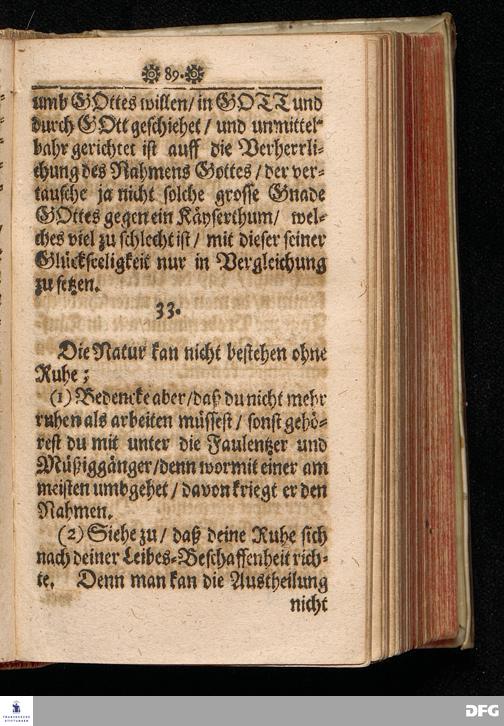 89.
umb GOttes willen/ in GOTT und
durch GOtt geschiehet / und unmittel-
bahr gerichtet ist auff die Verherrli-
chung des Nahmens Gottes / der ver-
tausche ja nicht solche grosse Gnade
GOttes gegen ein Käyserthum/ wel-
ches viel zu schlecht ist / mit dieser seiner
Glückseeligkeit nur in Vergleichung
zu setzen.
33.
Die Natur kan nicht bestehen ohne
Ruhe;
(1) Bedencke aber/daß du nicht mehr
ruhen als arbeiten müssest / sonst gehö-
rest du mit unter die Faulentzer und
Müßiggänger/denn wormit einer am
meisten umbgehet / davon kriegt er den
Nahmen.
(2) Siehe zu / daß deine Ruhe sich
nach deiner Leibes-Beschaffenheit rich-
te. Denn man kan die Austheilung
nicht
FRANCKESCHE
STIFTUNGEN
DFG